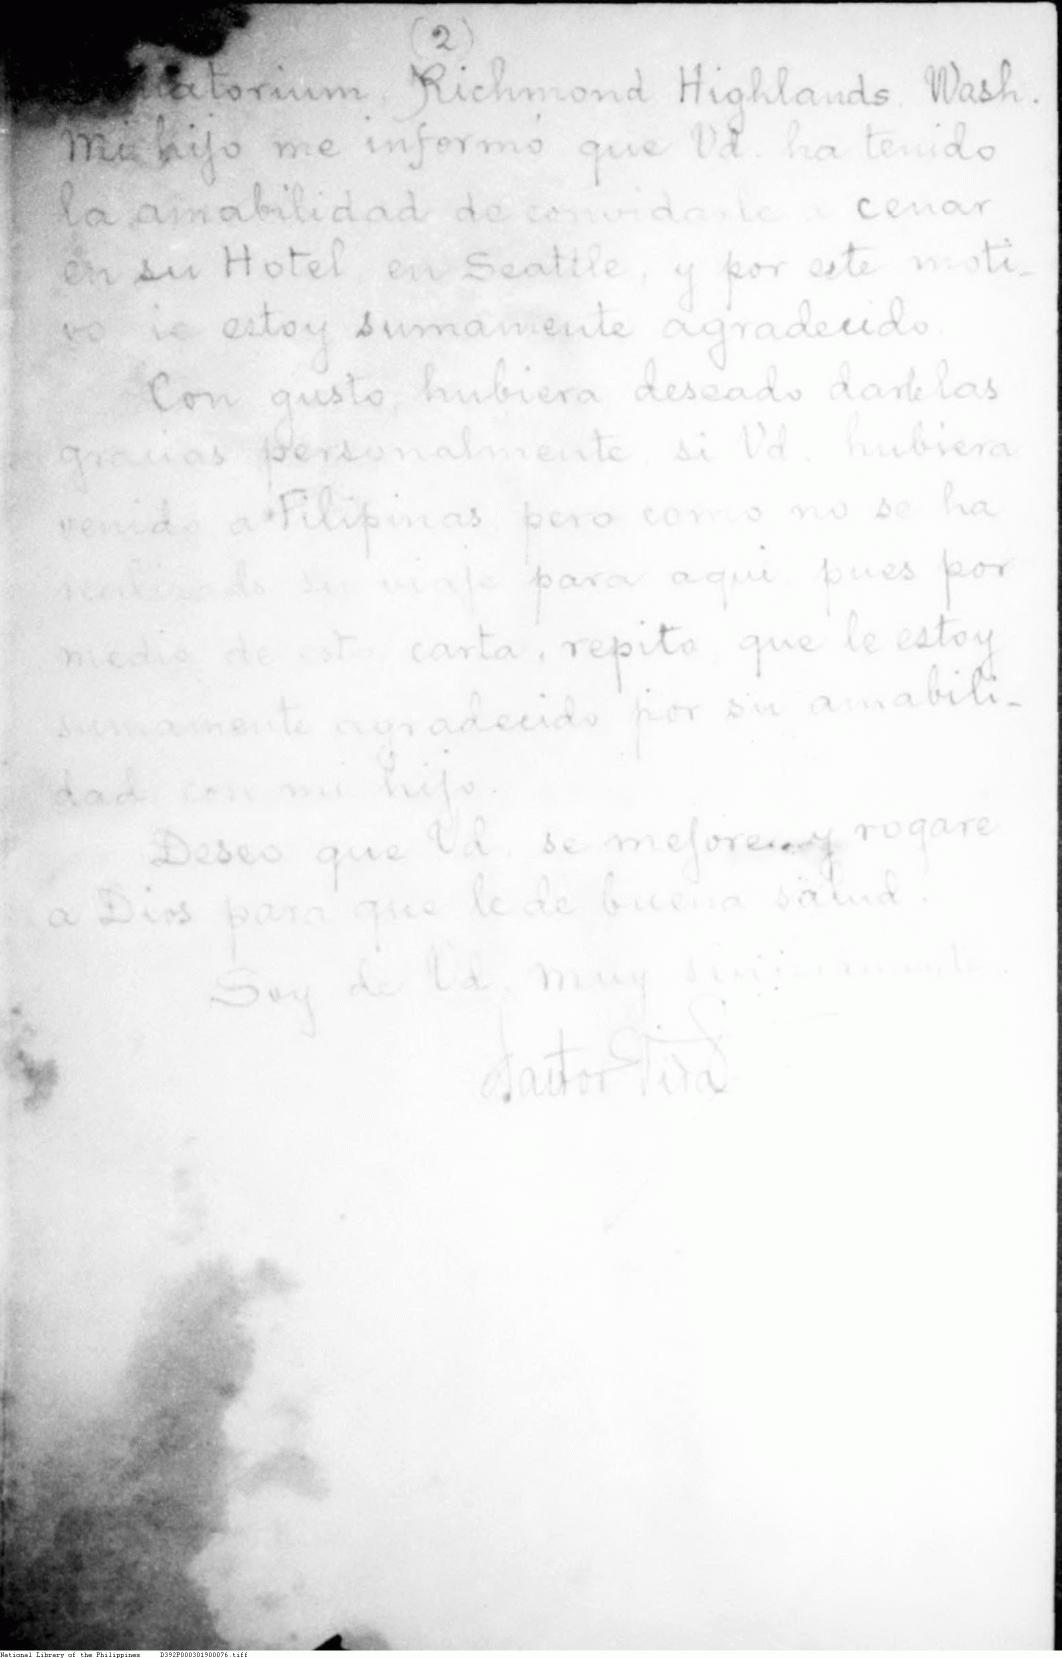 (2)
Richmond Highlands, Wash.
Mi hijo me informó que Vd. ha tenido
la amabilidad de convidarle a cenar
en su Hotel en Seattle, y por este moti-
vo le estoy sumamente agradecido.
Con gusto, hubiera deseado darle las
gracias personalmente, si Vd. hubiera
venido a Filipinas, pero como no se ha
realizado su viaje para aqui, pues por
medio de esta carta, repito, que le estoy
sumamente agradecido por su amabili-
dad con mi hijo.
Deseo que Vd. se mejore y rogare
a Dios para que le de buena salud.
Soy de Vd. muy
National Library of the Philippines D392P000301900076.tiff